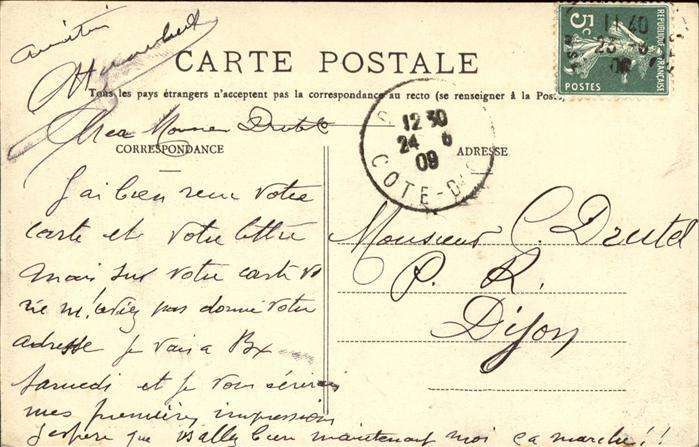 amitié
CARTE POSTALE
Tous les pays étrangers n'acceptent pas la correspondance au recto (se renseigner à la Poste)
Monsieur Drutel
CORRESPONDANCE
ADRESSE
J'ai bien reçu votre
carte et votre lettre
mais sur votre carte vo
ne m'aviez pas donné votre
adresse je vais a Bx
Samedi et je vous
mes premières impressions
J'espère que allez bien maintenant moi ça marche!!
Monsieur C. Drutel
P. R.
Dijon
12 30
24 6
09
COTE-D'OR
5c
REPUBLIQUE FRANÇAISE
POSTES
11 40
23
09